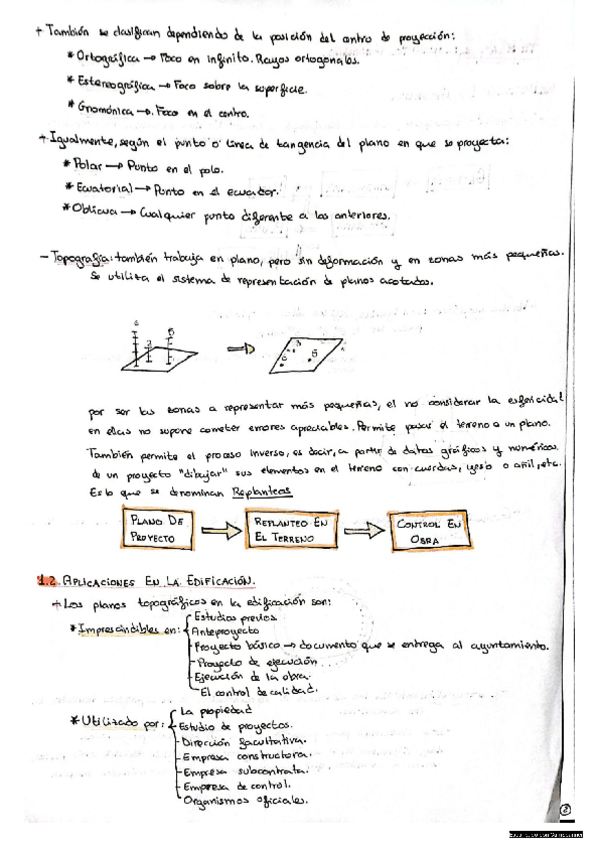 + También se clasifican dependiendo de la posición del centro de proyección:
* Ortográfica → Foco en infinito. Rayos ortogonales.
* Estereográfica → Foco sobre la superficie.
* Gnomónica → Foco en el centro.
+ Igualmente, según el punto o línea de tangencia del plano en que se proyecta:
* Polar → Punto en el polo.
* Ecuatorial → Punto en el ecuador.
* Oblicua → Cualquier punto diferente a los anteriores.
- Topografía: también trabaja en plano, pero sin deformación y en zonas más pequeñas.
Se utiliza el sistema de representación de planos acotados.
por ser las zonas a representar más pequeñas, el no considerar la esfericidad
en ellas no supone cometer errores apreciables. Permite pasar el terreno a un plano.
También permite el proceso inverso, es decir, a partir de datos gráficos y numéricos
de un proyecto "dibujar" sus elementos en el terreno con cuerdas, yeso o añil, etc.
Es lo que se denominan Replanteos
PLANO DE
PROYECTO
REPLANTEO EN
EL TERRENO
CONTROL EN
OBRA
1.2. APLICACIONES EN LA EDIFICACIÓN.
+ Los planos topográficos en la edificación son:
* Imprescindibles en:
Estudios previos
Anteproyecto
Proyecto básico → documento que se entrega al ayuntamiento.
Proyecto de ejecución
Ejecución de la obra.
El control de calidad.
* Utilizado por:
La propiedad
Estudio de proyectos.
Dirección facultativa.
Empresa constructora.
Empresa subcontrata.
Empresa de control.
Organismos oficiales.
2